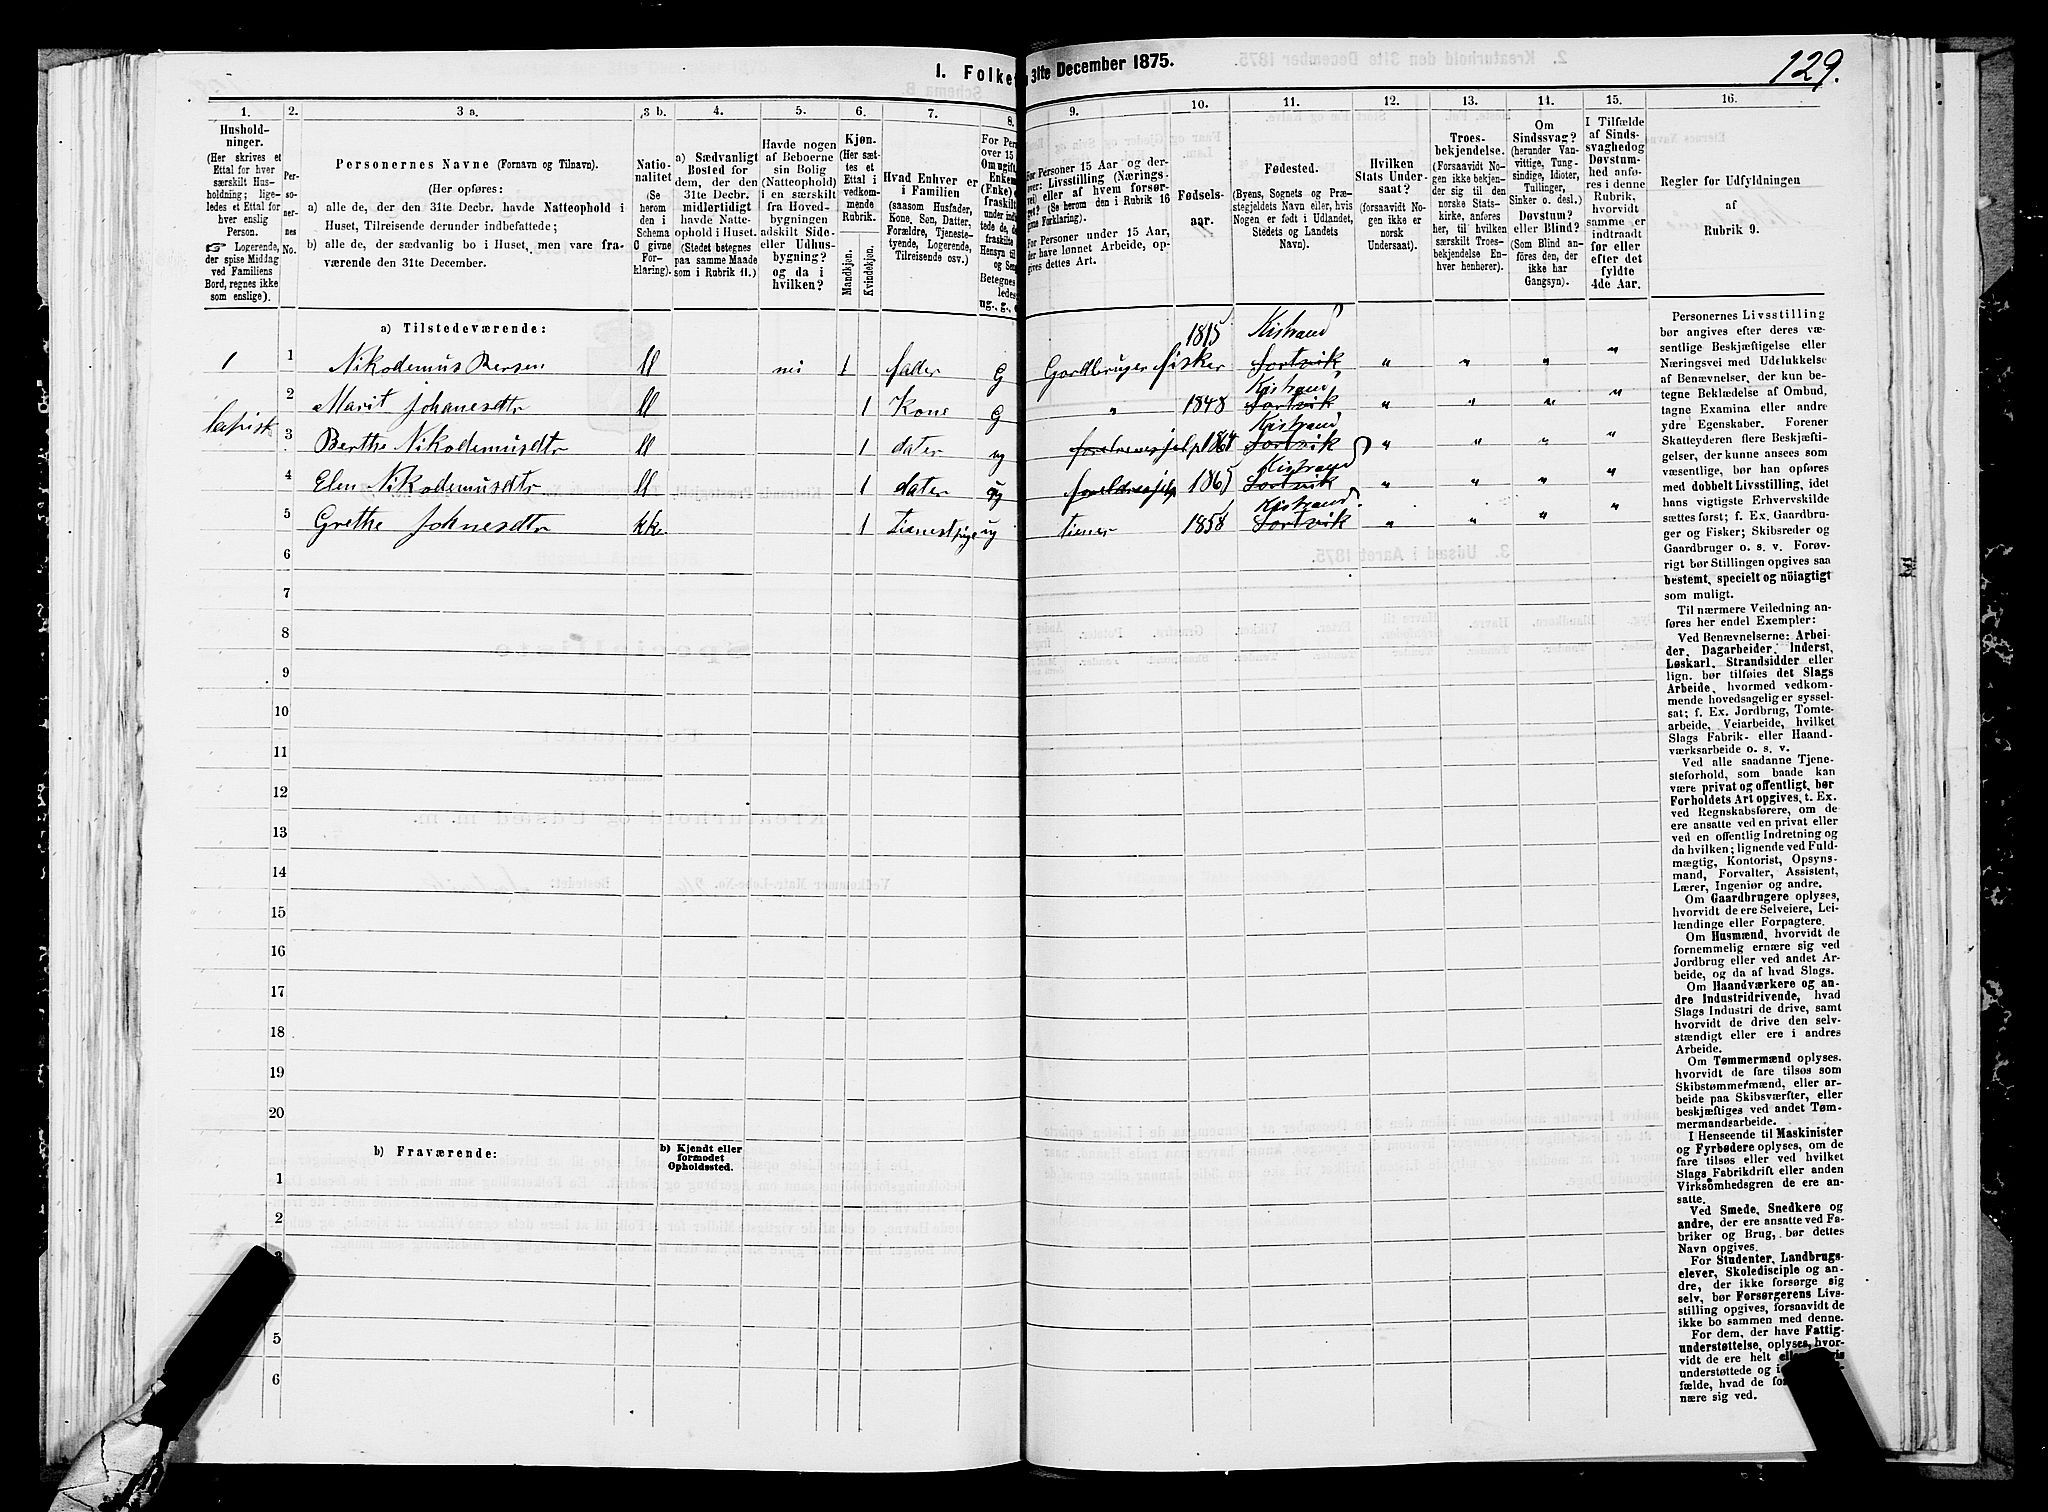 I. Folke
31te December 1875.
129.
1.
Hushold-
ninger.
(Her skrives et
Ettal for hver
særskilt Hus-
holdning; lige-
ledes et Ettal for
hver enslig
Person.
☞ Logerende,
der spise Middag
ved Familiens
Bord, regnes ikke
som enslige).
2.
Per-
so-
ner-
nes
No.
3 a.
Personernes Navne (Fornavn og Tilnavn).
(Her opføres:
a) alle de, der den 31te Decbr. havde Natteophold i
Huset, Tilreisende derunder indbefattede;
b) alle de, der sædvanlig bo i Huset, men vare fra-
værende den 31te December.)
3 b.
Natio-
nalitet
(Se
herom
den i
Schema
C givne
For-
klaring).
4.
a) Sædvanligt
Bosted for
dem, der den
31te Decbr.
midlertidigt
havde Natte-
ophold i Huset.
(Stedet betegnes
paa samme Maade
som i Rubrik 11.)
5.
Havde nogen
af Beboerne
sin Bolig
(Natteophold)
i en særskilt
fra Hoved-
bygningen
adskilt Side-
eller Udhus-
bygning?
og da i
hvilken?
6.
Kjøn.
(Her sæt-
tes et
Ettal i
vedkom-
mende
Rubrik.
Mandkjøn.
Kvindekjøn.
7.
Hvad Enhver er
i Familien
(saasom Husfader,
Kone, Søn, Datter,
Forældre, Tjeneste-
tyende, Logerende,
Tilreisende osv.)
8.
For Per
over 15
Om ugift
Enkem
(Enke) e
fraskilt
9.
For Personer 15 Aar og der-
over: Livsstilling (Nærings-
vei) eller af hvem forsør-
get? (Se herom den i Rubrik 16
givne Forklaring).
For Personer under 15 Aar,
der have lønnet Arbeide, op-
gives dettes Art.
10.
Fødsels-
aar.
11.
Fødested.
(Byens, Sognets og Præ-
stegjeldets Navn eller, hvis
Nogen er født i Udlandet,
Stedets og Landets
Navn).
12.
Hvilken
Stats Under-
saat?
(forsaavidt No-
gen ikke er
norsk
Undersaat).
13.
Troes-
bekjendelse.
(Forsaavidt No-
gen ikke bekjen-
der sig til den
norske Stats-
kirke, anføres
her, til hvilken
særskilt Troes-
bekjendelse En-
hver henhører).
14.
Om
Sindssvag?
(herunder Van-
vittige, Tung-
sindige, Idioter,
Tullinger,
Sinker o. desl.)
Døvstum?
eller Blind?
(Som Blind an-
føres den, der
ikke har
Gangsyn).
15.
I Tilfælde
af Sinds-
svaghed og
Døvstum-
hed anfø-
res i denne
Rubrik,
hvorvidt
samme er
indtraadt
før eller
efter det
fyldte
4de Aar.
16.
Regler for Udfyldningen
af
Rubrik 9.
a) Tilstedeværende:
1 1 Nikodemus Bersen ll nei 1 fader G Gardbruger fisker 1815 Kistrand Sortvik " " " "
2 Marit Johanesdtr ll 1 Kone G " 1848 Kistrand Sortvik " " " "
lapisk
3 Berthe Nikodemusdtr ll 1 dater ug 1864 Kistrand Sortvik " " " "
4 Elen Nikodemusdtr ll 1 dater ug 1865 Kistrand Sortvik " " " "
5 Grethe Johnesdtr kk. 1 ug tiener 1858 Kistrand Sortvik " " " "
6
7
8
9
10
11
12
13
14
15
16
17
18
19
20
b) Fraværende:
b) Kjendt eller
formodet
Opholdssted.
1
2
3
5
6
Personernes Livsstilling
bør angives efter deres væ-
sentlige Beskjæftigelse eller
Næringsvei med Udelukkelse
af Benævnelser, der kun be-
tegne Beklædelse af Ombud,
tagne Examina eller andre
ydre Egenskaber. Forener
Skatteyderen flere Beskjæfti-
gelser, der kunne ansees som
væsentlige, bør han opføres
med dobbelt Livsstilling, idet
hans vigtigste Erhvervskilde
sættes først; f. Ex. Gaardbru-
ger og Fisker; Skibsreder og
Gaardbruger o. s. v. Forøv-
rigt bør Stillingen opgives saa
bestemt, specielt og nöiagtigt
som muligt.
Til nærmere Veiledning an-
føres her endel Exempler:
Ved Benævnelserne: Arbei-
der, Dagarbeider, Inderst,
Løskarl, Strandsidder eller
lign. bør tilføies det Slags
Arbeide, hvormed vedkom-
mende hovedsagelig er syssel-
sat; f. Ex. Jordbrug, Tomte-
arbeide, Veiarbeide, hvilket
Slags Fabrik- eller Haand-
værksarbeide o. s. v.
Ved alle saadanne Tjene-
steforhold, som baade kan
være privat og offentligt, bør
Forholdets Art opgives, t. Ex.
ved Regnskabsførere, om de
ere ansatte ved en privat eller
ved en offentlig Indretning og
da hvilken; lignende ved Fuld-
mægtig, Kontorist, Opsyns-
mand, Forvalter, Assistent,
Lærer, Ingeniør og andre.
Om Gaardbrugere oplyses,
hvorvidt de ere Selveiere, Lei-
lændinge eller Forpagtere.
Om Husmænd, hvorvidt de
fornemmelig ernære sig ved
Jordbrug eller ved andet Ar-
beide, og da af hvad Slags.
Om Haandværkere og an-
dre Industridrivende, hvad
Slags Industri de drive, samt
hvorvidt de drive den selv-
stændigt eller ere i andres
Arbeide.
Om Tømmermænd oplyses,
hvorvidt de fare tilsøs som
Skibstømmermænd, eller ar-
beide paa Skibsværfter, eller
beskjæftiges ved andet Tøm-
mermandsarbeide.
I Henseende til Maskinister
og Fyrbødere oplyses, om de
fare tilsøs eller ved hvilket
Slags Fabrikdrift eller anden
Virksomhedsgren de ere an-
satte.
Ved Smede, Snedkere og
andre, der ere ansatte ved Fa-
briker og Brug, bør dettes
Navn opgives.
For Studenter, Landbrugs-
elever, Skoledisciple og an-
dre, der ikke forsørge sig
selv, bør Forsørgerens Livs-
stilling opgives, forsaavidt de
ikke bo sammen med denne.
For dem, der have Fattig-
understøttelse, oplyses, hvor-
vidt de ere helt
understøttede og i
fælde, hvad de
nære sig ved.